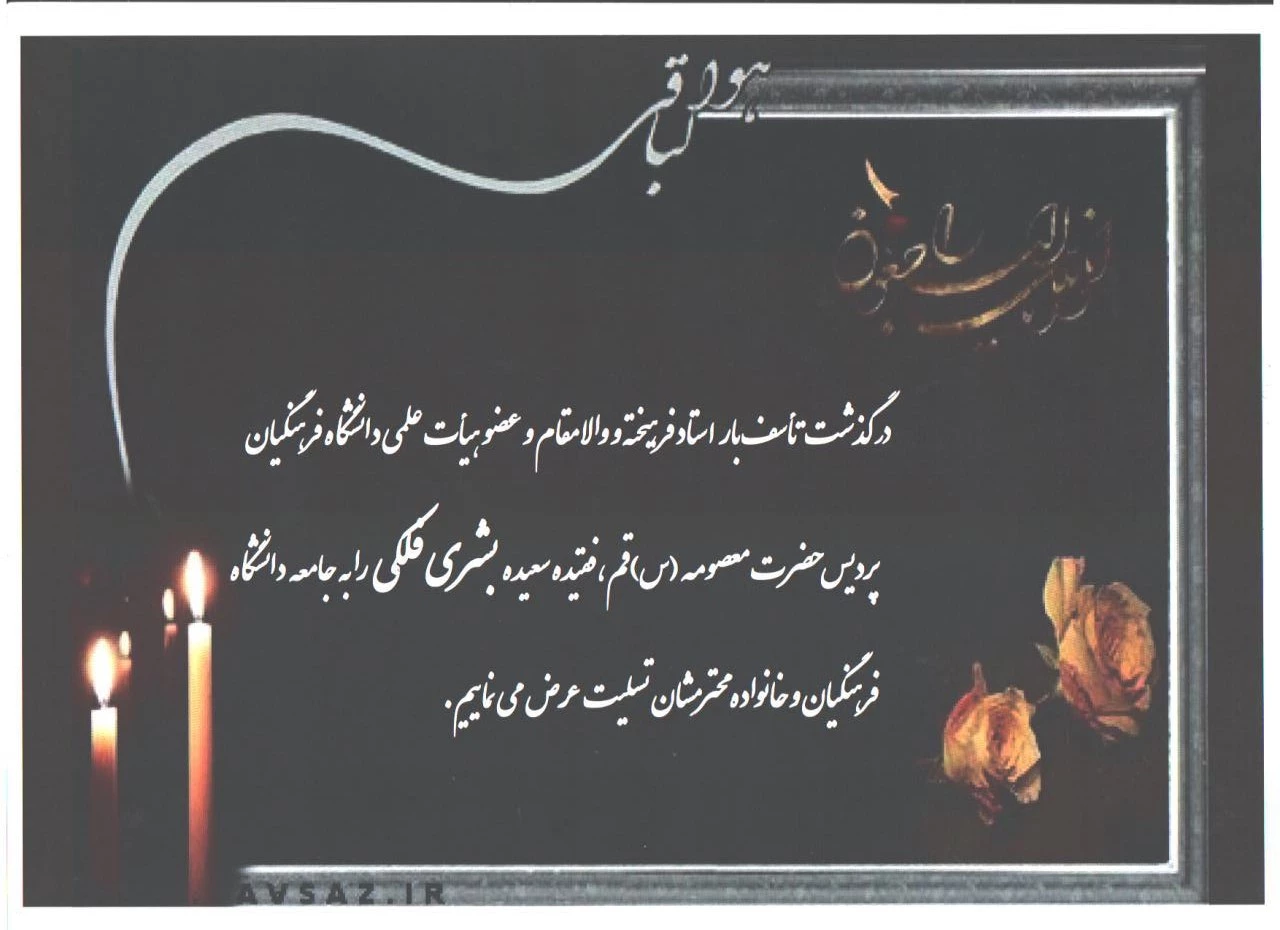 هوالباقی
انا لله و انا الیه راجعون
درگذشت تأسف بار استاد فرهیخته و والامقام و عضو هیأت علمی دانشگاه فرهنگیان
پردیس حضرت معصومه (س) قم، فقیده سعیده بشری فلکی را به جامعه دانشگاه
فرهنگیان و خانواده محترمشان تسلیت عرض می نماییم.
AVSAZ.IR